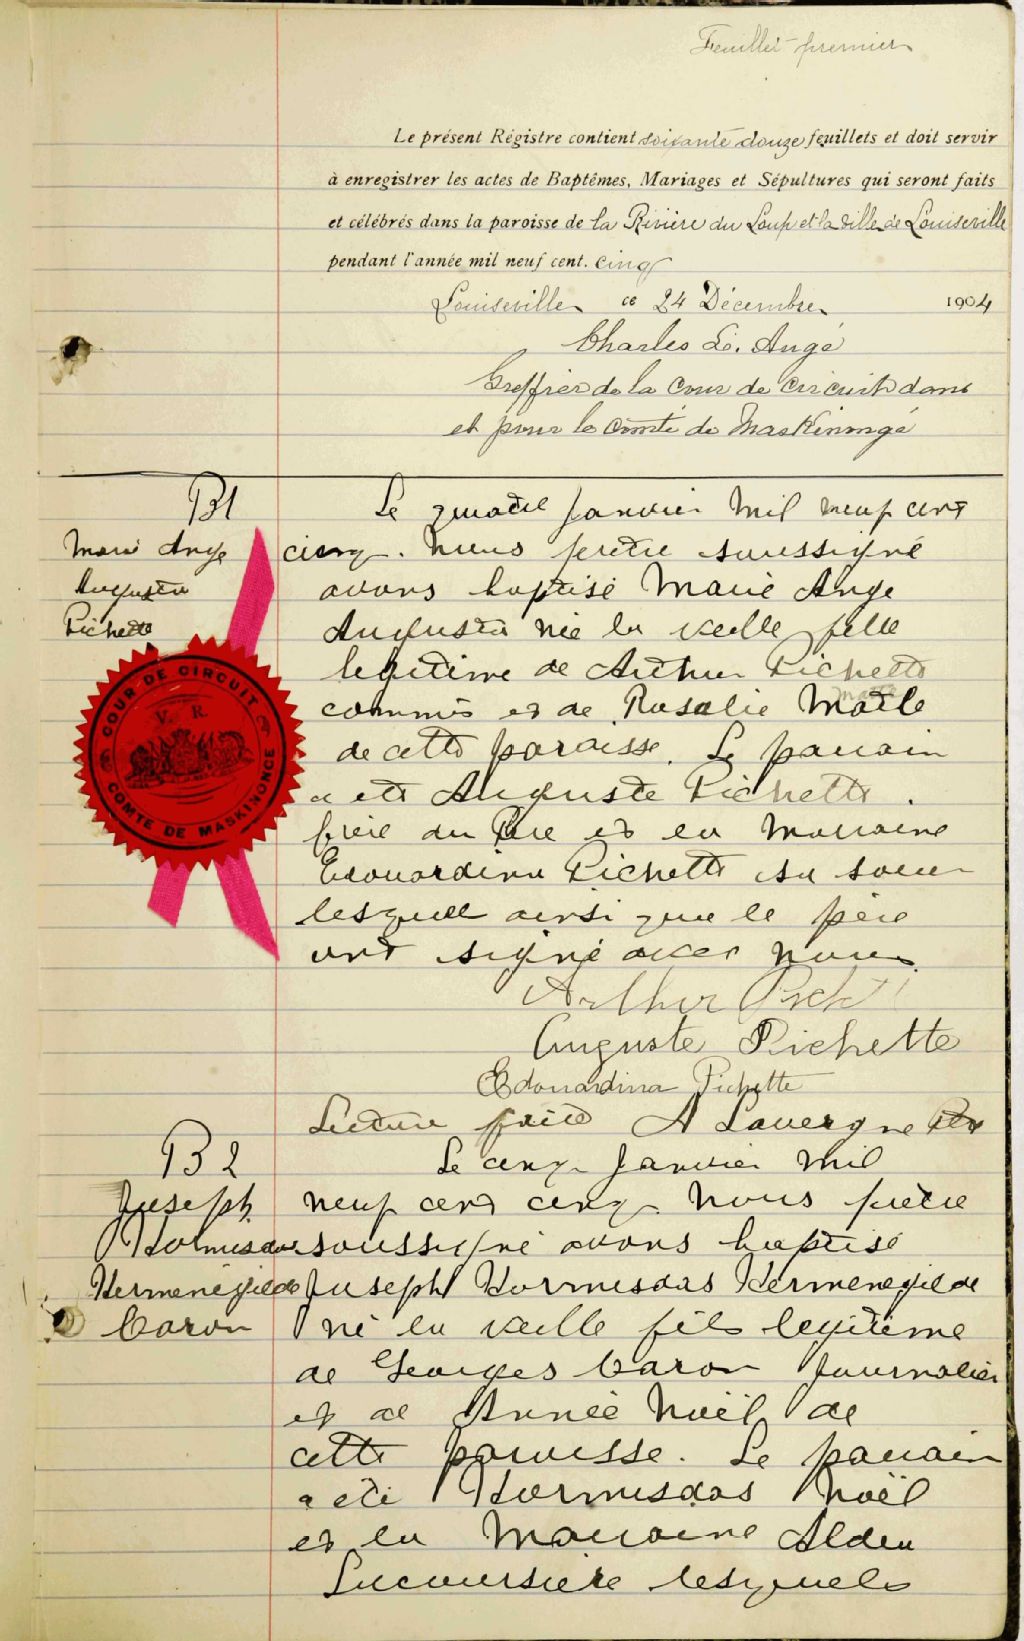 Feuillet premier
Le présent Régistre contient soixante douze feuillets et doit servir
à enregistrer les actes de Baptêmes, Mariages et Sépultures qui seront faits
et célébrés dans la paroisse de la Rivière du Loup et la ville de Louiseville
pendant l'année mil neuf cent. cinq
Louiseville ce 24 Décembre 1904
Charles L. Augé
Greffier de la Cour de circuit dans
et pour le comté de Maskinongé
B1
Marie Ange
Augusta
Pichette
COUR DE CIRCUIT
V. R.
COMTE DE MASKINONGE
Le quatre Janvier mil neuf cent
cinq. Nous prêtre soussigné
avons baptisé Marie Ange
Augusta née la veille fille
légitime de Arthur Pichette
commis et de Rosalie
de cette paroisse. Le parrain
a été Auguste Pichette.
frère du Père et la marraine
Edouardina Pichette sa soeur
lesquels ainsi que le père
ont signé avec nous
Arthur
Auguste Pichette
Edouardina Pichette
Lecture faite A Lavergne Ptre
B 2
Joseph
Hormisdas
Hermenégilde
Caron
Le cinq Janvier mil
neuf cent cinq Nous prêtre
soussigné avons baptisé
Joseph Hormisdas Hermenegilde
né la veille fils legitime
de Georges Caron Journalier
et de Année Noël de
cette paroisse. Le parrain
a été Hormisdas Noël
et la Marraine Alda
Lacoursière lesquels